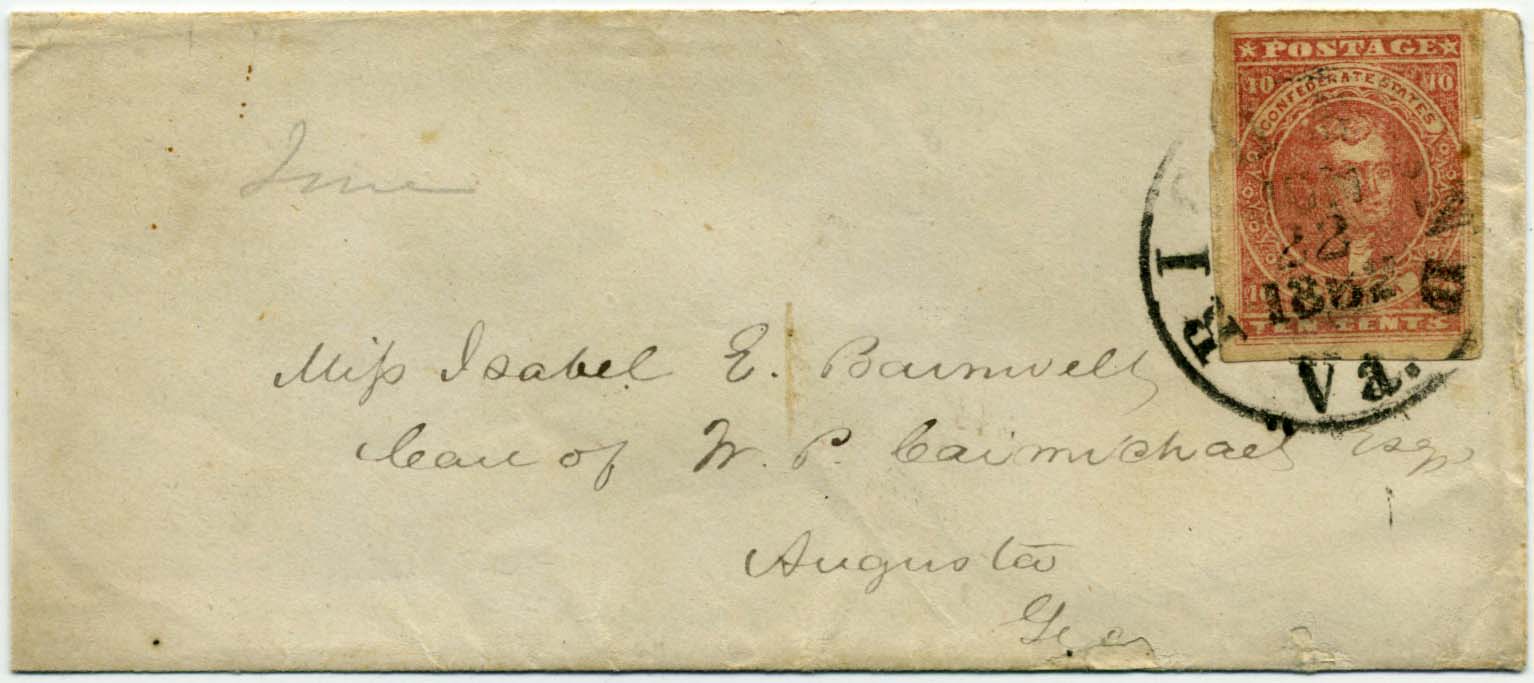 ★ POSTAGE ★
10 10
CONFEDERATE STATES
JUN
22
1862
10
TEN CENTS
RI ND
Va.
June
Miss Isabel E. Barnwell
Care of W. P. Carmichael Esqr
Augusta
Geo